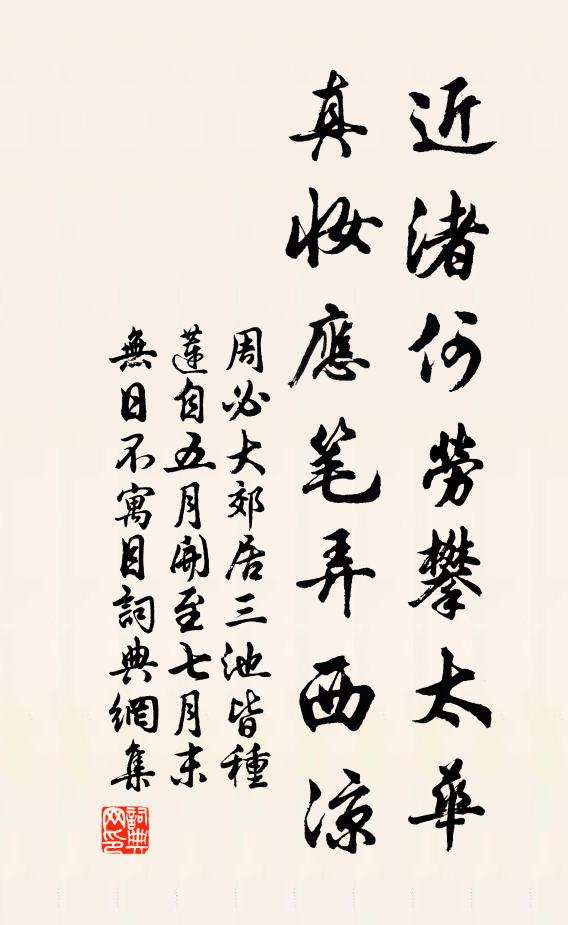 近渚何勞攀太華
真妝應笔弄西涼
周必大郊居三池皆種
蓮自五月開至七月末
無日不寓目詞典網集
詞典网印